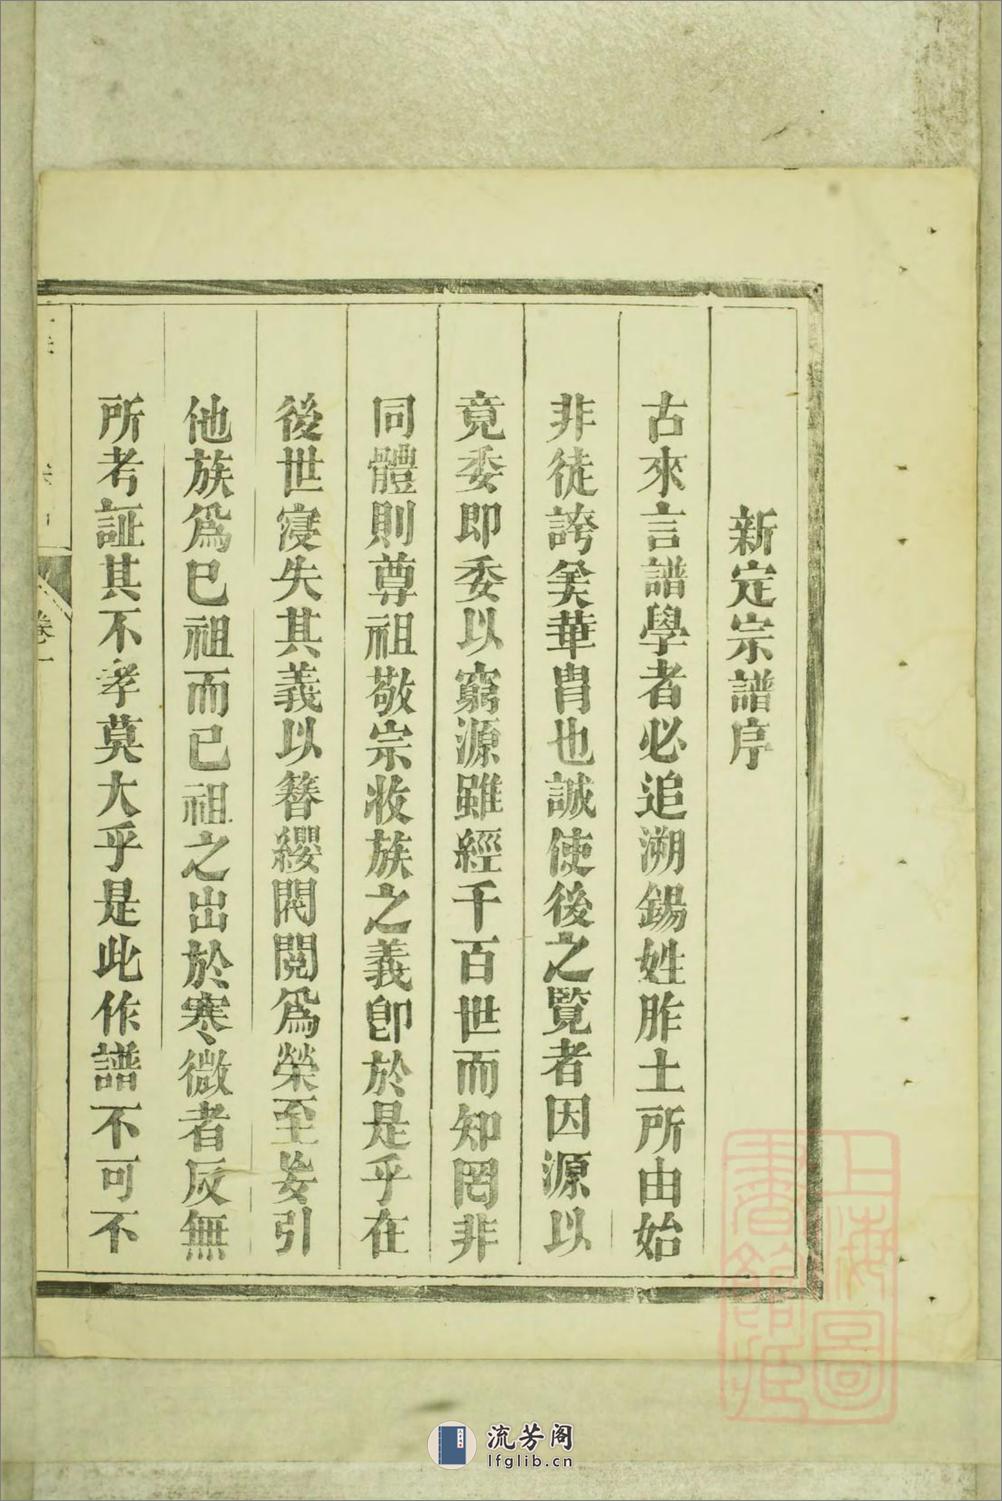 新定宗譜序
古來言譜學者必追溯錫姓胙土所由始
非徒誇美華胄也誠使後之覽者因源以
竟委即委以窮源雖經千百世而知罔非
同體則尊祖敬宗收族之義卽於是乎在
後世寖失其義以簪纓閥閱爲榮至妄引
他族爲已祖而已祖之出於寒微者反無
所考証其不孝莫大乎是此作譜不可不
卷一
上海圖
書館藏
流芳阁
lfglib.cn